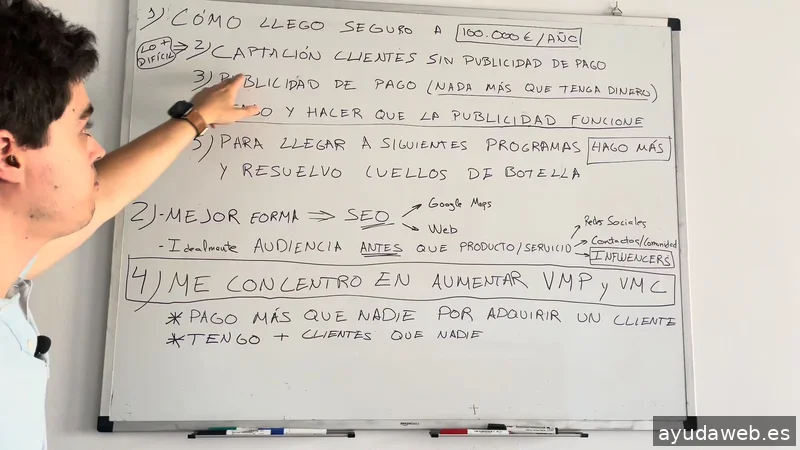 1) CÓMO LLEGO SEGURO A 100.000€/AÑO
LO + DIFÍCIL ⇒ 2) CAPTACIÓN CLIENTES SIN PUBLICIDAD DE PAGO
3) PUBLICIDAD DE PAGO (NADA MÁS QUE TENGA DINERO)
Y HACER QUE LA PUBLICIDAD FUNCIONE
5) PARA LLEGAR A SIGUIENTES PROGRAMAS HAGO MÁS
Y RESUELVO CUELLOS DE BOTELLA
2)-MEJOR FORMA ⇒ SEO → Google Maps
→ Web
- Idealmente AUDIENCIA ANTES QUE PRODUCTO/SERVICIO → Redes Sociales
→ Contactos/Comunidad
→ INFLUENCERS
4) ME CONCENTRO EN AUMENTAR VMP y VMC
* PAGO MÁS QUE NADIE POR ADQUIRIR UN CLIENTE
* TENGO + CLIENTES QUE NADIE
ayudaweb.es